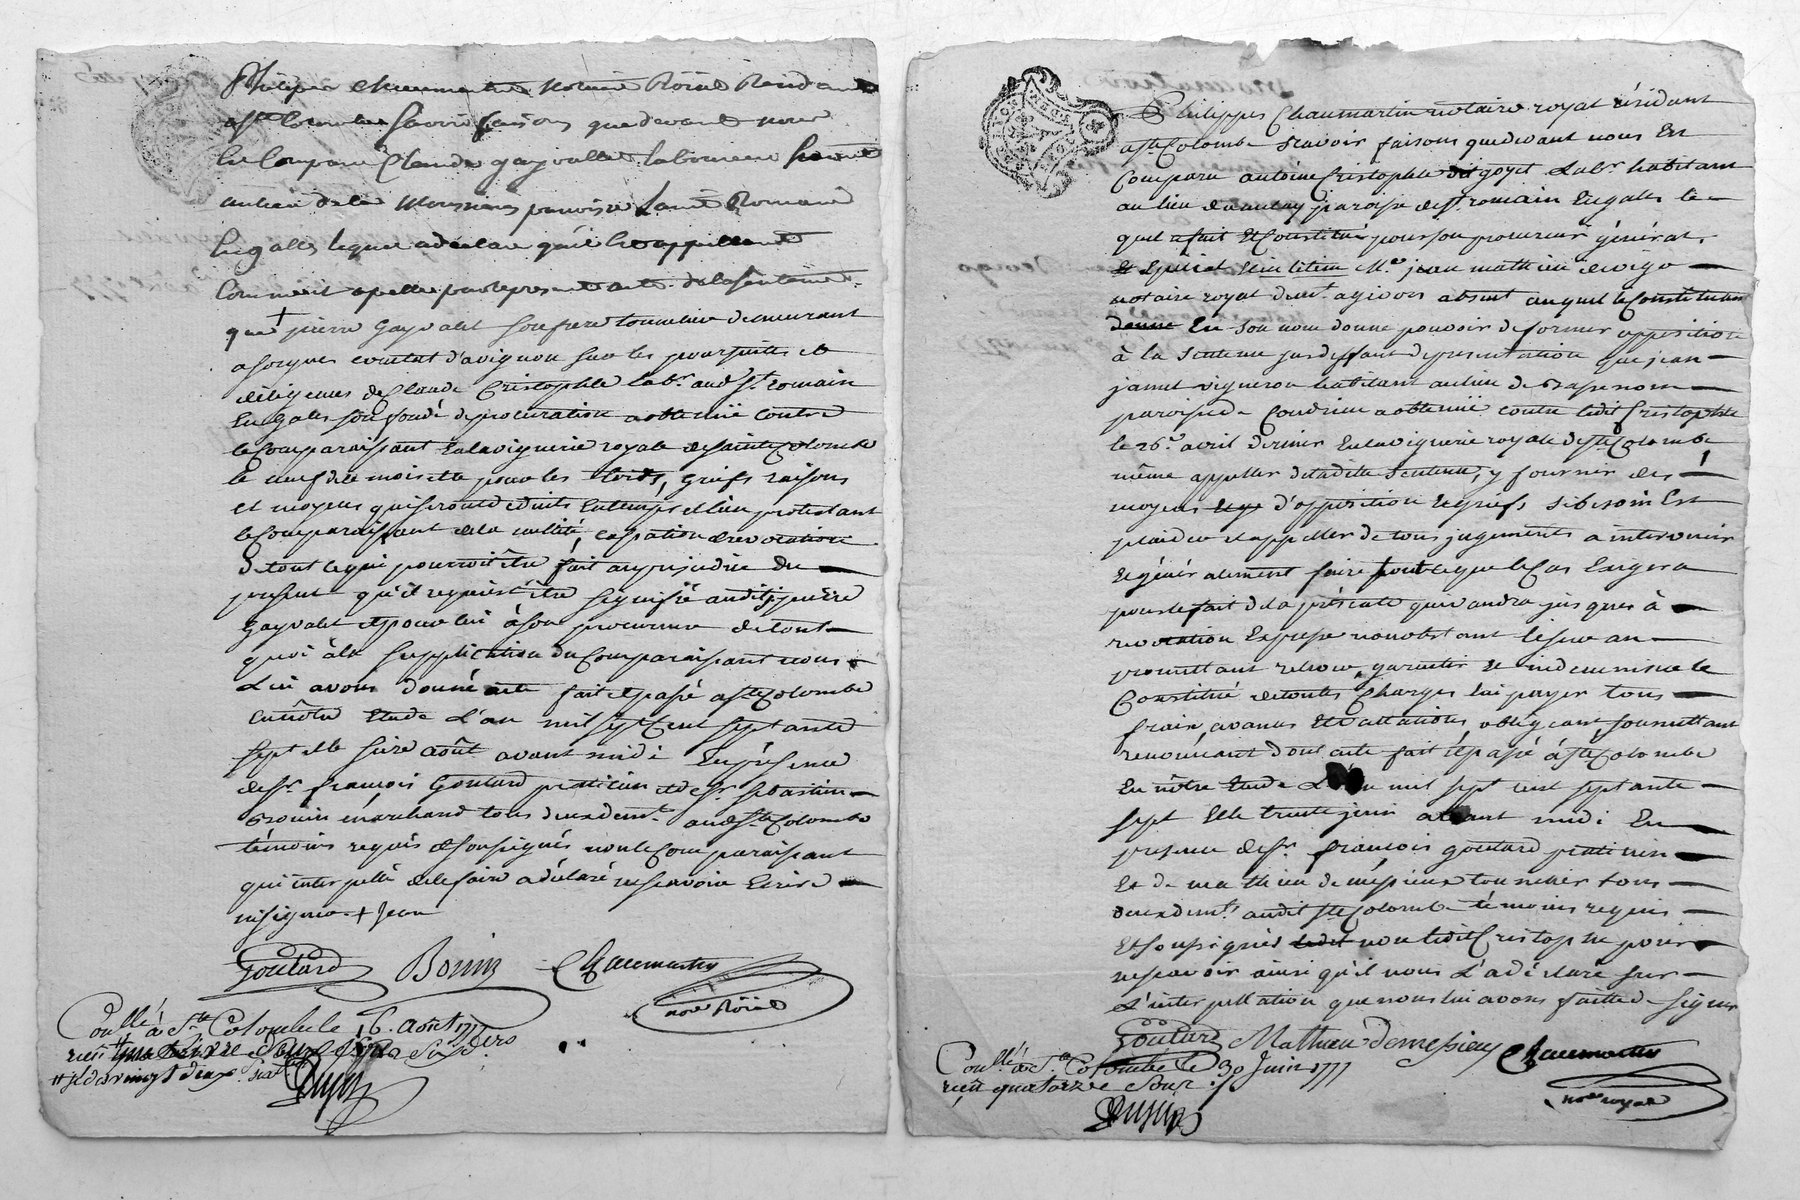 Philippe Chaumartin Notaire Roial Residant
a Ste Colombe Savoir faisons que devant nous
Est Comparu Claude gayvallet laboureur
au lieu de la paroisse Saint Romain
En galles lequel a declaré qu'il est appellant
Comme il apelle par le present acte de la Sentence
que pierre gayvalet son frere tonnelier demeurant
a sorgues comtat d'avignon sur les poursuittes et
diligences de Claude Cristophle labr. aud. St. romain
En gales son fondé de procuration a obtenüe contre
le Comparaissant En la viguerie royale de Sainte Colombe
le neuf de ce mois et ce pour les torts, griefs raisons
et moyens qui seront deduits En tems et lieu protestant
le Comparaissant de la nullité, cassation et revocation
de tout ce qui pourroit être fait au préjudice du
present qu'il requiert être signifié audit pierre
gayvalet et pour lui à son procureur de tout
quoi à la supplication du Comparaissant nous
Lui avons donné acte fait et passé a Ste Colombe
En nôtre Etude L'an mil sept Cent septante
sept et le seize août avant midi En présence
de sr. françois Goutard praticien et de sr. sebastien
Bonin marchand tous deux demt. aud. Ste Colombe
témoins requis et soussignés non le Comparaissant
qui interpellé de le faire a déclaré ne savoir Ecrire
ni signer + Jean
Goutard Bonin Chaumartin
nore Roial
Conllé à Ste Colombe le 16. Aout 1777
reçu quatorze Sous Six Ders.
Dugas
Philippe Chaumartin notaire royal résidant
a Ste Colombe scavoir faisons que devant nous Est
Comparu antoine Cristophle dit goyet Labr. habitant
au lieu de paroisse de St. romain En gales le
quel a fait et Constitué pour son procureur général
Et Special Me. jean mathieu
notaire royal absent auquel le Constituant
donne En son nom donne pouvoir de former opposition
à la sentence par deffaut de presentation que jean
janet vigneron habitant au lieu de
paroisse de Condrieu a obtenüe contre ledit Cristophle
le 26e. avril dernier En la viguerie royale de Ste Colombe
même appeller de ladite sentence, y fournir des
moyens d'opposition et griefs si besoin Est
plaider et appeller de tous jugements a intervenir
Et généralement faire tout ce que le Cas Exigera
pour le fait de la présente qui vaudra jusques à
revocation Expresse nonobstant l'an
promettant relever, garantir et indemniser le
Constitué de toutes Charges lui payer tous
frais, avances Et vaccations obligeant soumettant
renonçant dont acte fait et passé à Ste Colombe
En nôtre Etude L'an mil sept cent septante
sept Et le trente juin avant midi En
presence de sr. françois goutard praticien
Et de mathieu demésieux tonnelier tous
deux demts. audit Ste Colombe témoins requis
Et soussignés ledit non ledit Cristophle pour
ne scavoir ainsi qu'il nous L'a déclaré sur
L'interpellation que nous lui avons faitte de signer
Goutard Mathieu Demesieux Chaumartin
nore royal
Conllé à Ste Colombe le 30 Juin 1777
reçu quatorze Sous
Dugas